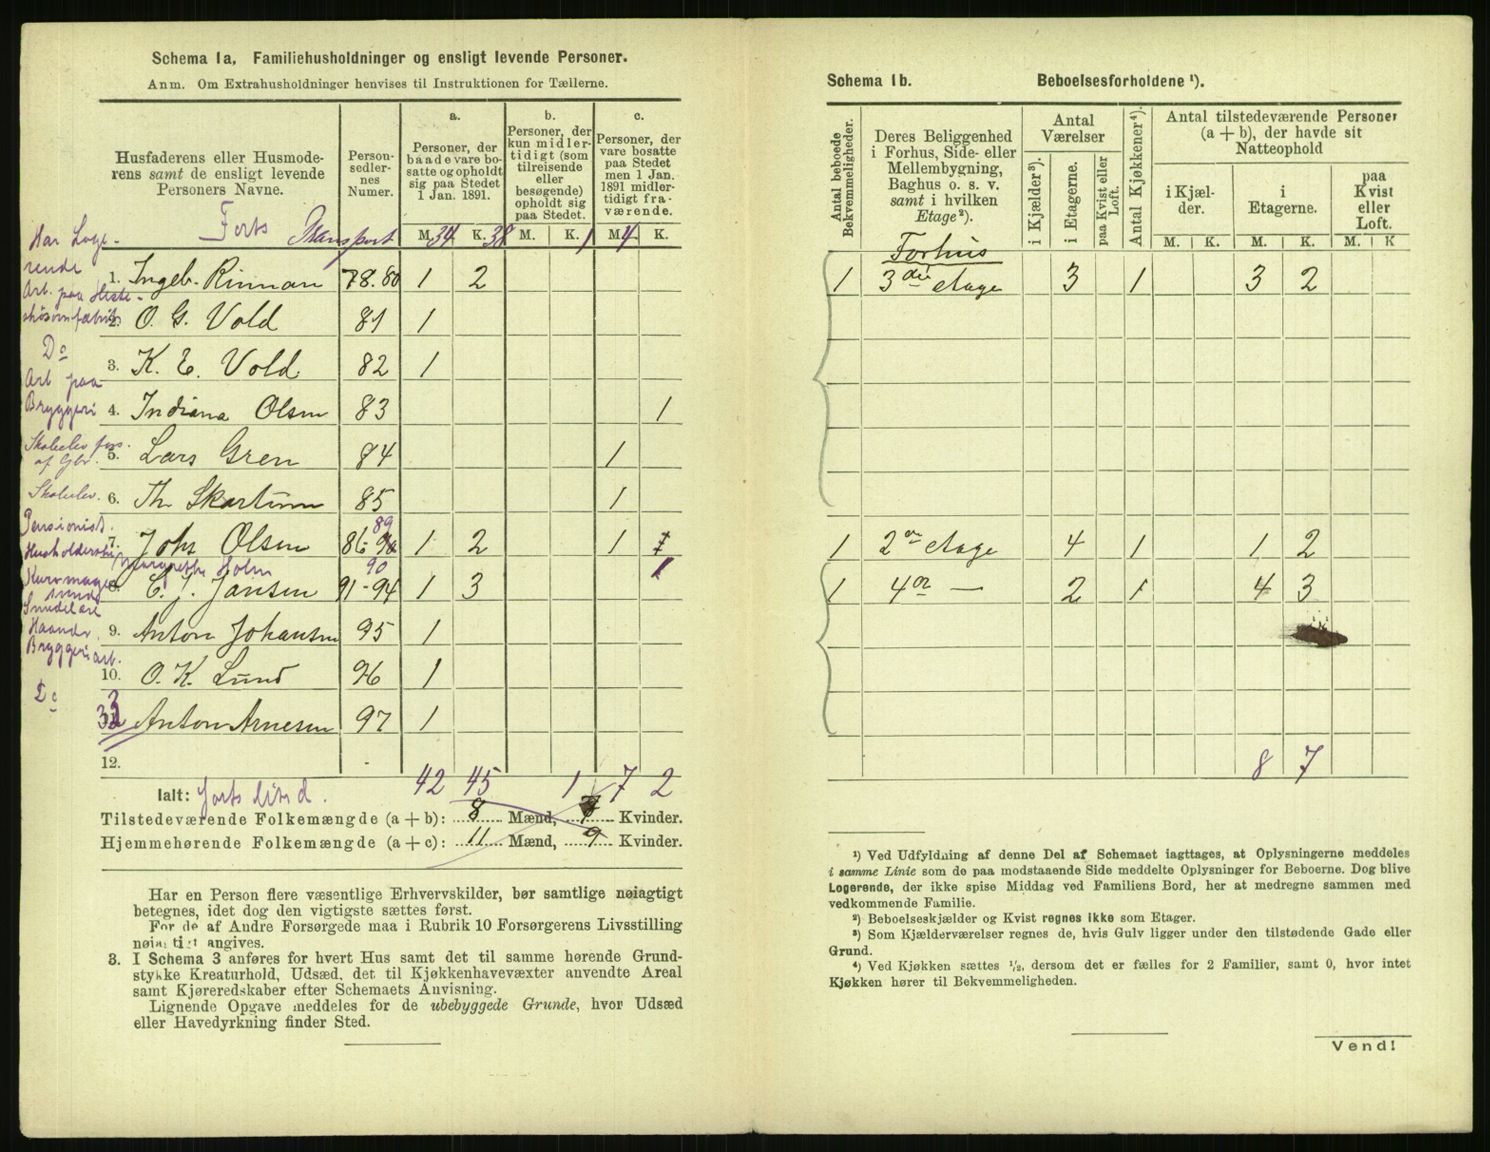 Schema 1a, Familiehusholdninger og ensligt levende Personer.
Anm. Om Extrahusholdninger henvises til Instruktionen for Tællerne.
Husfaderens eller Husmode-
rens samt de ensligt levende
Personers Navne.
Person-
sedler-
nes
Numer.
a.
Personer, der
baade vare bo-
satte og opholdt
sig paa Stedet
1 Jan. 1891.
b.
Personer, der
kun midler-
tidigt (som
tilreisende
eller
besøgende)
opholdt sig
paa Stedet.
c.
Personer, der
vare bosatte
paa Stedet
men 1 Jan.
1891 midler-
tidigt fra-
værende.
Forts Transport M. 34 K. 38 M. K. 1 M. 4 K.
Har Loge-
rende
1. Ingeb. Rinnan 78. 80 1 2
Art. paa Heste-
skosømfabrik
2. O. G. Vold 81 1
Do
3. K. E. Vold 82 1
Art paa
Bryggeri
4. Indiana Olsen 83 1
Skoleelev fors.
af Gbr.
5. Lars Gren 84 1
Skoleelev.
6. Th. Skartum 85 1
Pensionist.
7. Johs Olsen 86- 89 1 2 1
Margrethe Holm 90 1
8. C. J. Jansen 91-94 1 3
9. Anton Johansen 95 1
Haandv.
Bryggeri arb.
10. O. K. Lund 96 1
Do
33 Anton Arnesen 97 1
12.
Ialt: 42 45 1 7 2
Tilstedeværende Folkemængde (a + b): 8 Mænd, 7 Kvinder.
Hjemmehørende Folkemængde (a + c): 11 Mænd, 9 Kvinder.
Har en Person flere væsentlige Erhvervskilder, bør samtlige nøiagtigt
betegnes, idet dog den vigtigste sættes først.
For de af Andre Forsørgede maa i Rubrik 10 Forsørgerens Livsstilling
nøiagtigt angives.
3. I Schema 3 anføres for hvert Hus samt det til samme hørende Grund-
stykke Kreaturhold, Udsæd, det til Kjøkkenhavevæxter anvendte Areal
samt Kjøreredskaber efter Schemaets Anvisning.
Lignende Opgave meddeles for de ubebyggede Grunde, hvor Udsæd
eller Havedyrkning finder Sted.
Schema 1b. Beboelsesforholdene ¹).
Antal beboede
Bekvemmeligheder.
Deres Beliggenhed
i Forhus, Side- eller
Mellembygning,
Baghus o. s. v.
samt i hvilken
Etage²).
Antal
Værelser
i Kjælder³).
i Etagerne.
paa Kvist eller
Loft.
Antal Kjøkkener⁴).
Antal tilstedeværende Personer
(a + b), der havde sit
Natteophold
i Kjæl-
der.
i
Etagerne.
paa
Kvist
eller
Loft.
M. K. M. K. M. K
Forhus
1 3die etage 3 1 3 2
1 2en etage 4 1 1 2
1 4en — 2 1 4 3
8 7
¹) Ved Udfyldning af denne Del af Schemaet iagttages, at Oplysningerne meddeles
i samme Linie som de paa modstaaende Side meddelte Oplysninger for Beboerne. Dog blive
Logerende, der ikke spise Middag ved Familiens Bord, her at medregne sammen med
vedkommende Familie.
²) Beboelseskjælder og Kvist regnes ikke som Etager.
³) Som Kjælderværelser regnes de, hvis Gulv ligger under den tilstødende Gade eller
Grund.
⁴) Ved Kjøkken sættes ½, dersom det er fælles for 2 Familier, samt 0, hvor intet
Kjøkken hører til Bekvemmeligheden.
Vend!